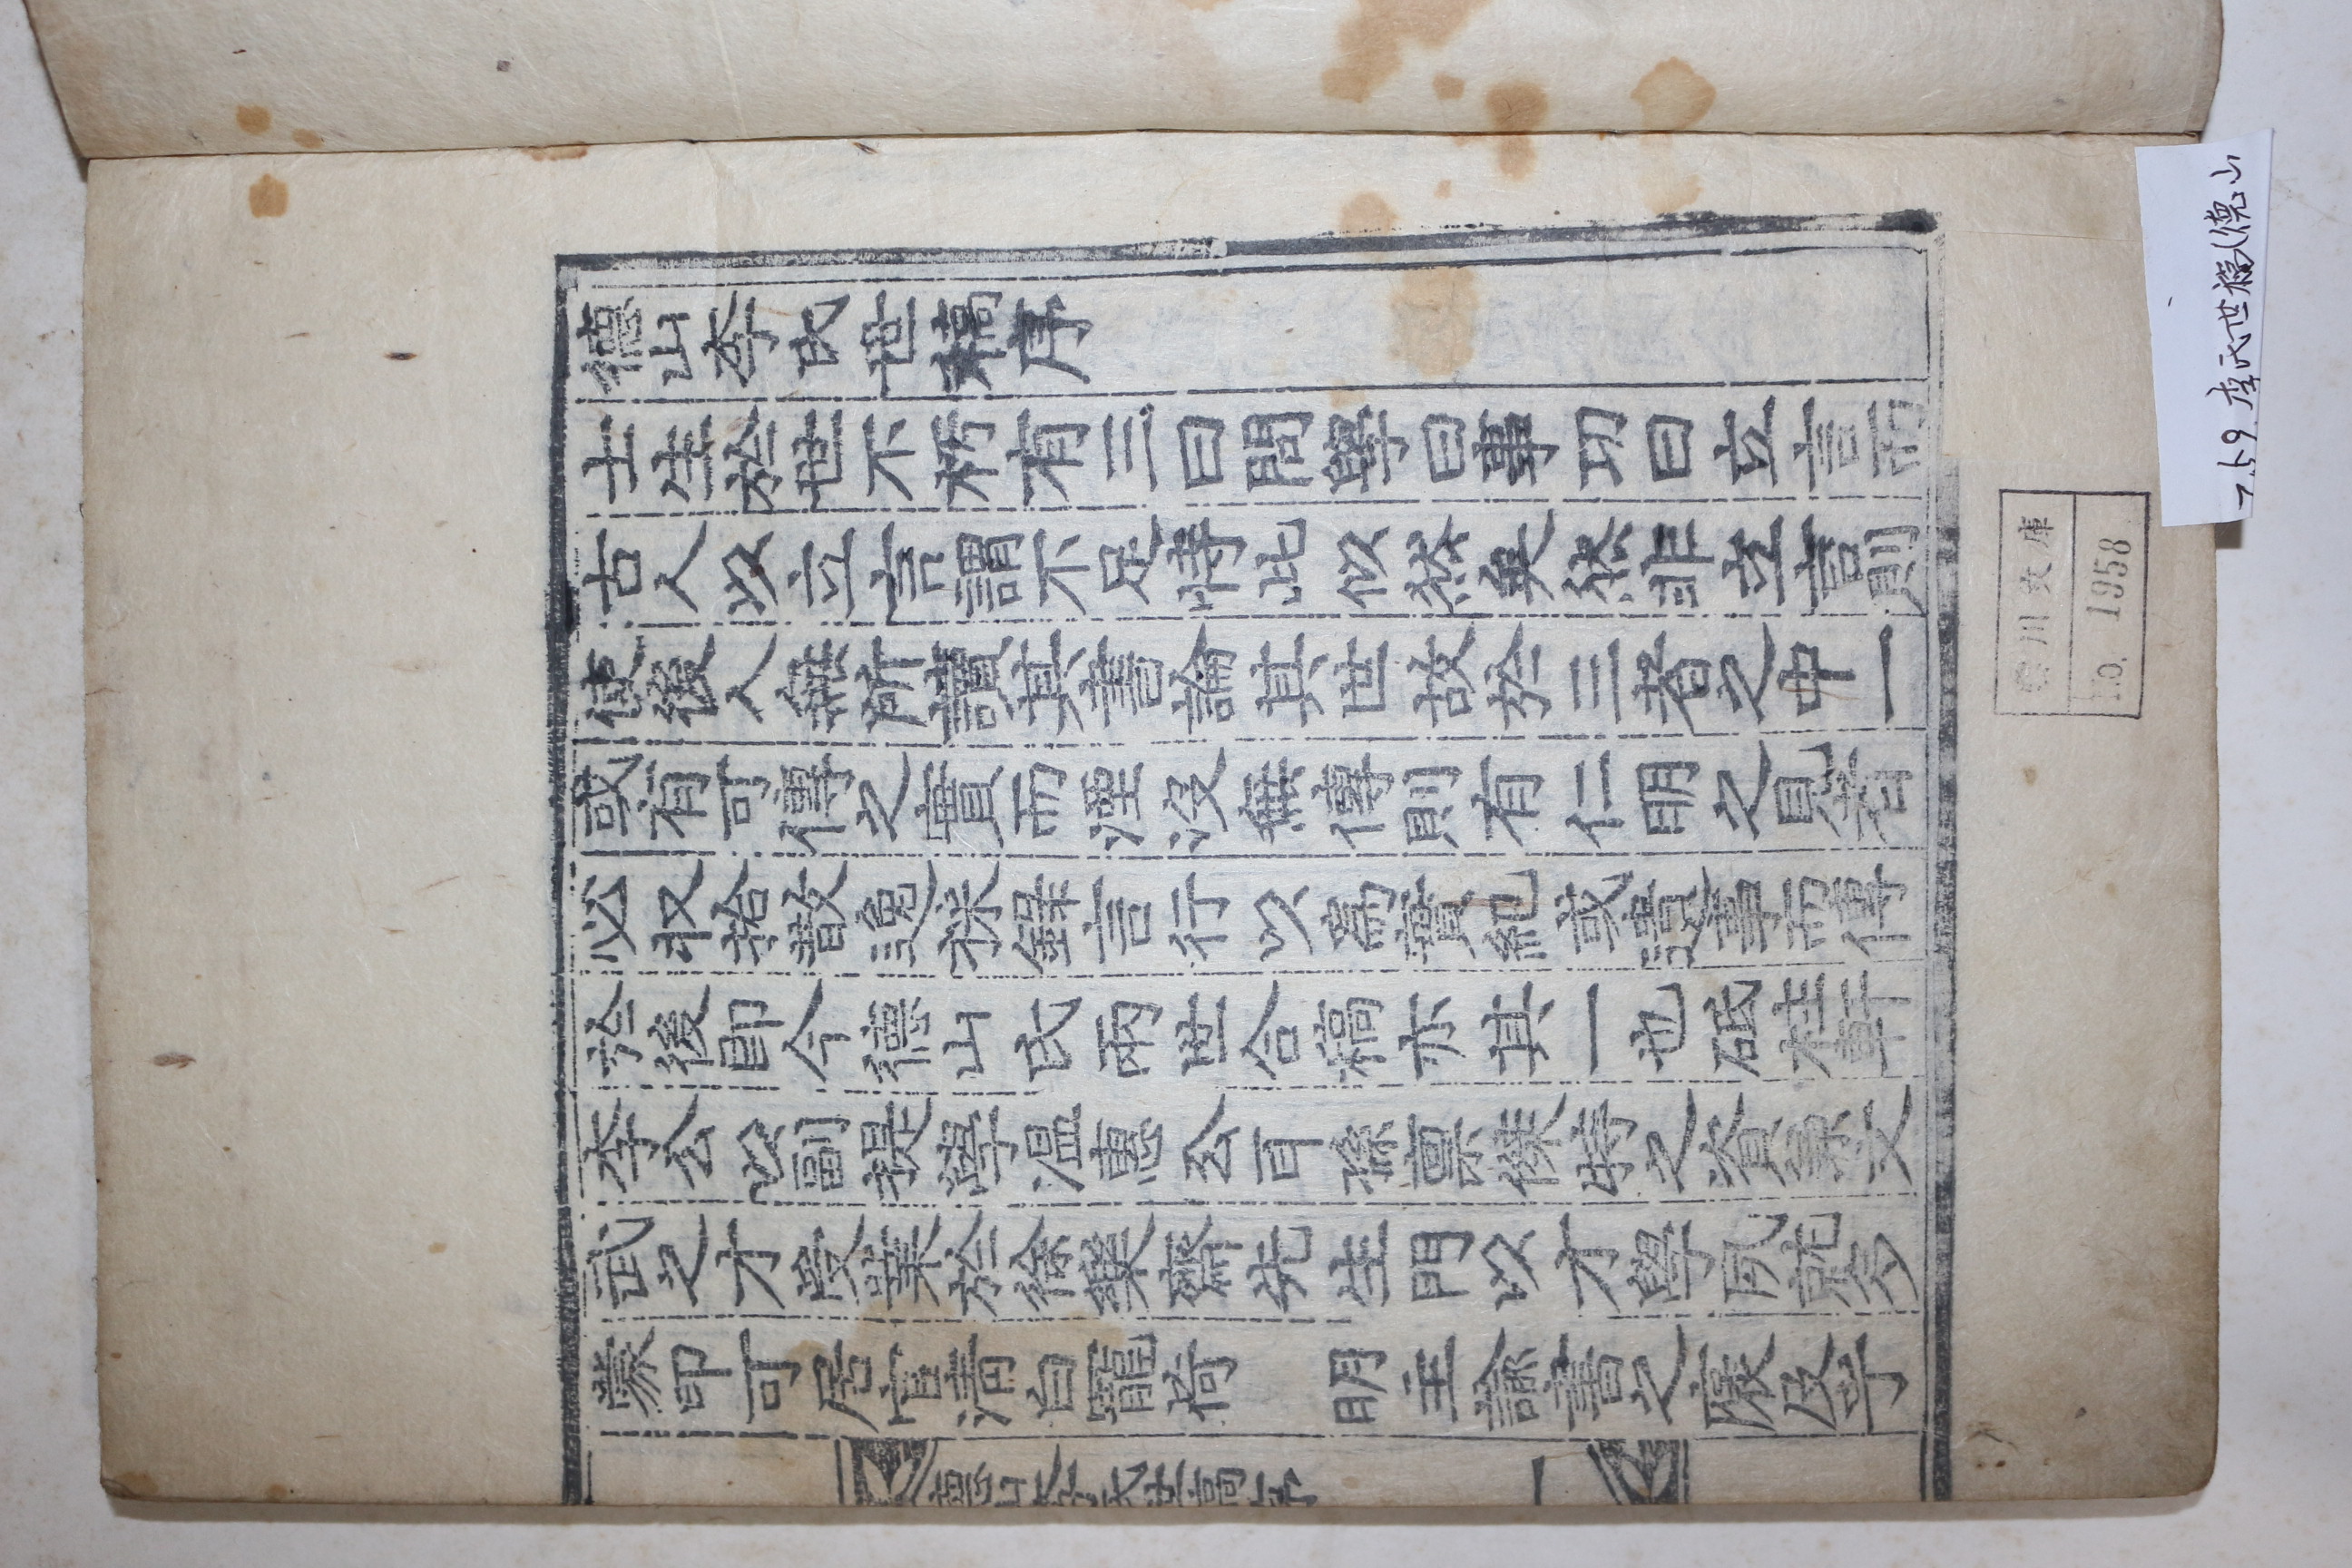 德山李氏世稿序
士生於世不朽有三曰問學曰事功曰立言而
古人以立言謂不足恃此似然矣然非立言則
使後人無所讀其書論其世故於三者之中一
或有可傳之實而湮沒無傳則有仁明之見者
必収拾散逸採錄言行以爲實紀或遺事而傳
於後卽今德山氏兩世合稿亦其一也砥柱軒
李公以副提學溫惠公耳孫稟傑時之資兼文
武之才受業於徐樂齋先生門以才學夙就多
蒙印可居官淸白罷荷 明主諭書之褒及乎
德山李氏世稿序 一
川文庫
No. 1958
59.李氏世稿(德山